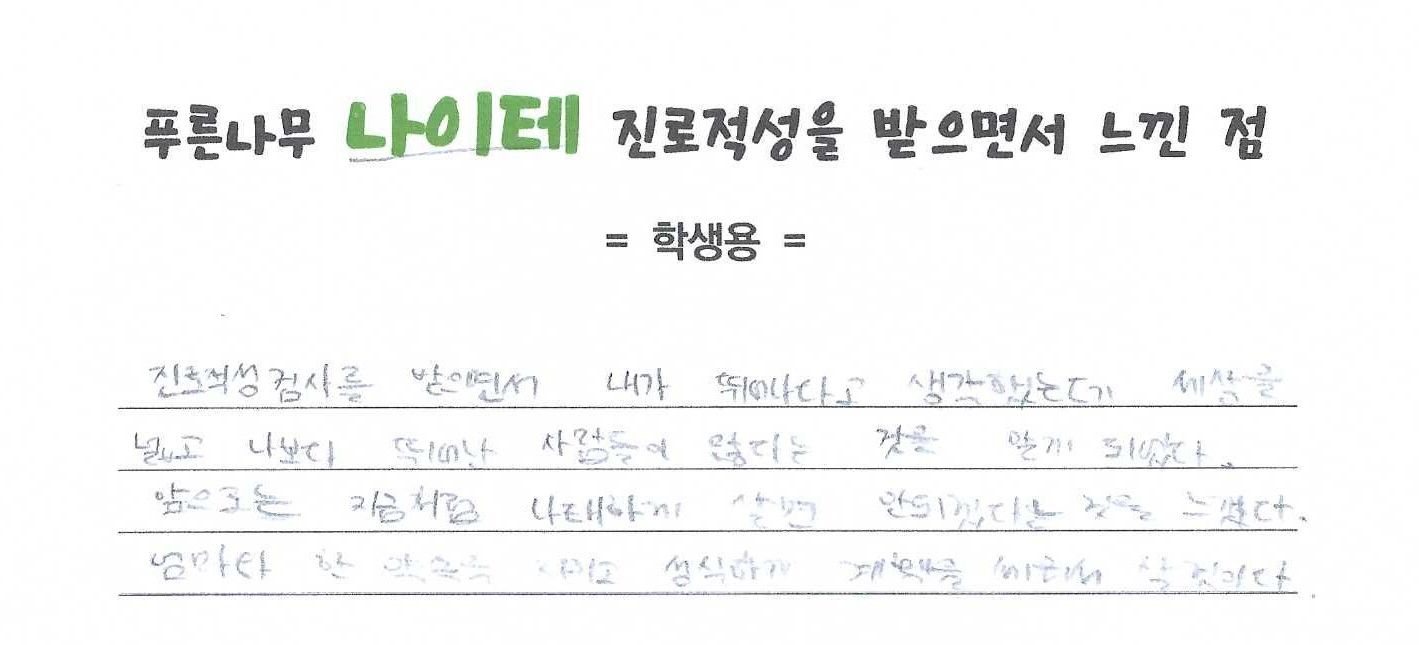 푸른나무 나이테 진로적성을 받으면서 느낀 점
= 학생용 =
진로적성검사를 받으면서 내가 뛰어나다고 생각했는데 세상은
넓고 나보다 뛰어난 사람들이 많다는 것을 알게 되었다.
앞으로는 지금처럼 나태하게 살면 안되겠다는 것을 느꼈다.
엄마와 한 약속을 지키고 성실하게 계획을 세워서 살 것이다.